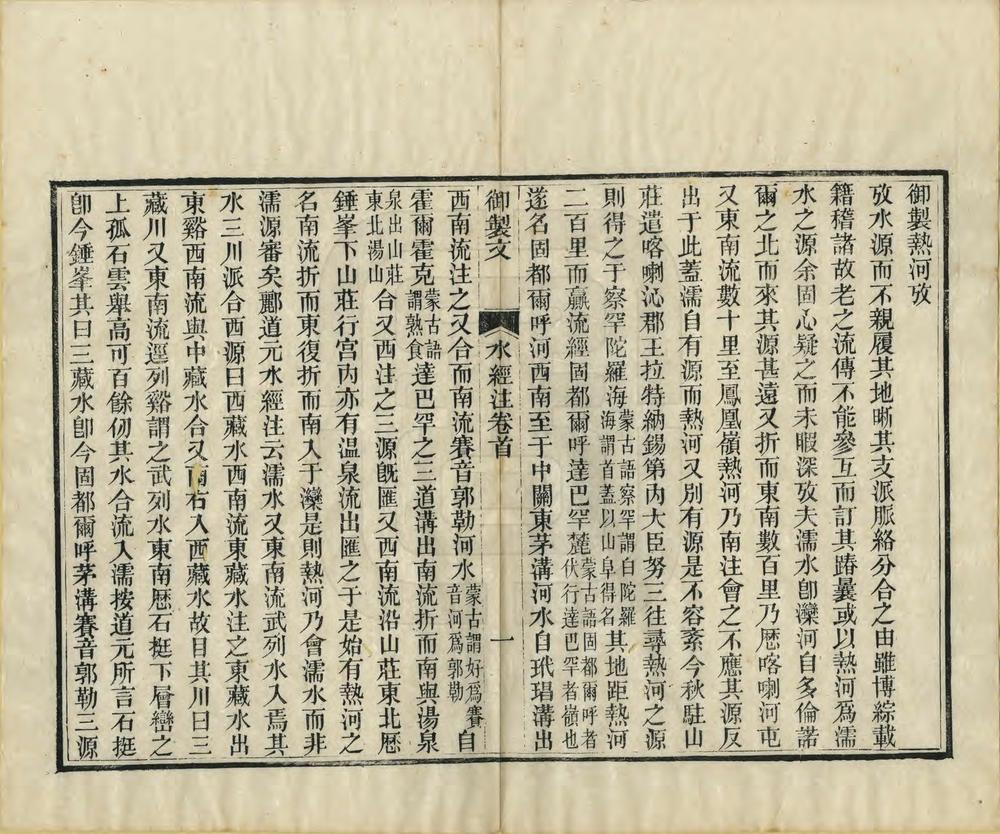 御製熱河攷
攷水源而不親履其地晰其支派脈絡分合之由雖博綜載
籍稽諸故老之流傳不能參互而訂其踳曩或以熱河爲濡
水之源余固心疑之而未暇深攷夫濡水卽灤河自多倫諾
爾之北而來其源甚遠又折而東南數百里乃歷喀喇河屯
又東南流數十里至鳳凰嶺熱河乃南注會之不應其源反
出于此蓋濡自有源而熱河又別有源是不容紊今秋駐山
莊遣喀喇沁郡王拉特納錫第內大臣努三往尋熱河之源
則得之于察罕陀羅海蒙古語察罕謂白陀羅海謂首蓋以山阜得名其地距熱河
二百里而贏流經固都爾呼達巴罕麓蒙古語固都爾呼者伏行達巴罕者嶺也
遂名固都爾呼河西南至于中關東茅溝河水自玳瑁溝出
御製文 水經注卷首 一
西南流注之又合而南流賽音郭勒河水蒙古謂好爲賽音河爲郭勒自
霍爾霍克蒙古語謂熱食達巴罕之三道溝出南流折而南與湯泉
泉出山莊東北湯山合又西注之三源既匯又西南流沿山莊東北歷
錘峯下山莊行宮內亦有溫泉流出匯之于是始有熱河之
名南流折而東復折而南入于灤是則熱河乃會濡水而非
濡源審矣酈道元水經注云濡水又東南流武列水入焉其
水三川派合西源曰西藏水西南流東藏水注之東藏水出
東谿西南流與中藏水合又南右入西藏水故目其川曰三
藏川又東南流逕列谿謂之武列水東南歷石挺下層巒之
上孤石雲舉高可百餘仞其水合流入濡按道元所言石挺
卽今錘峯其曰三藏水卽今固都爾呼茅溝賽音郭勒三源